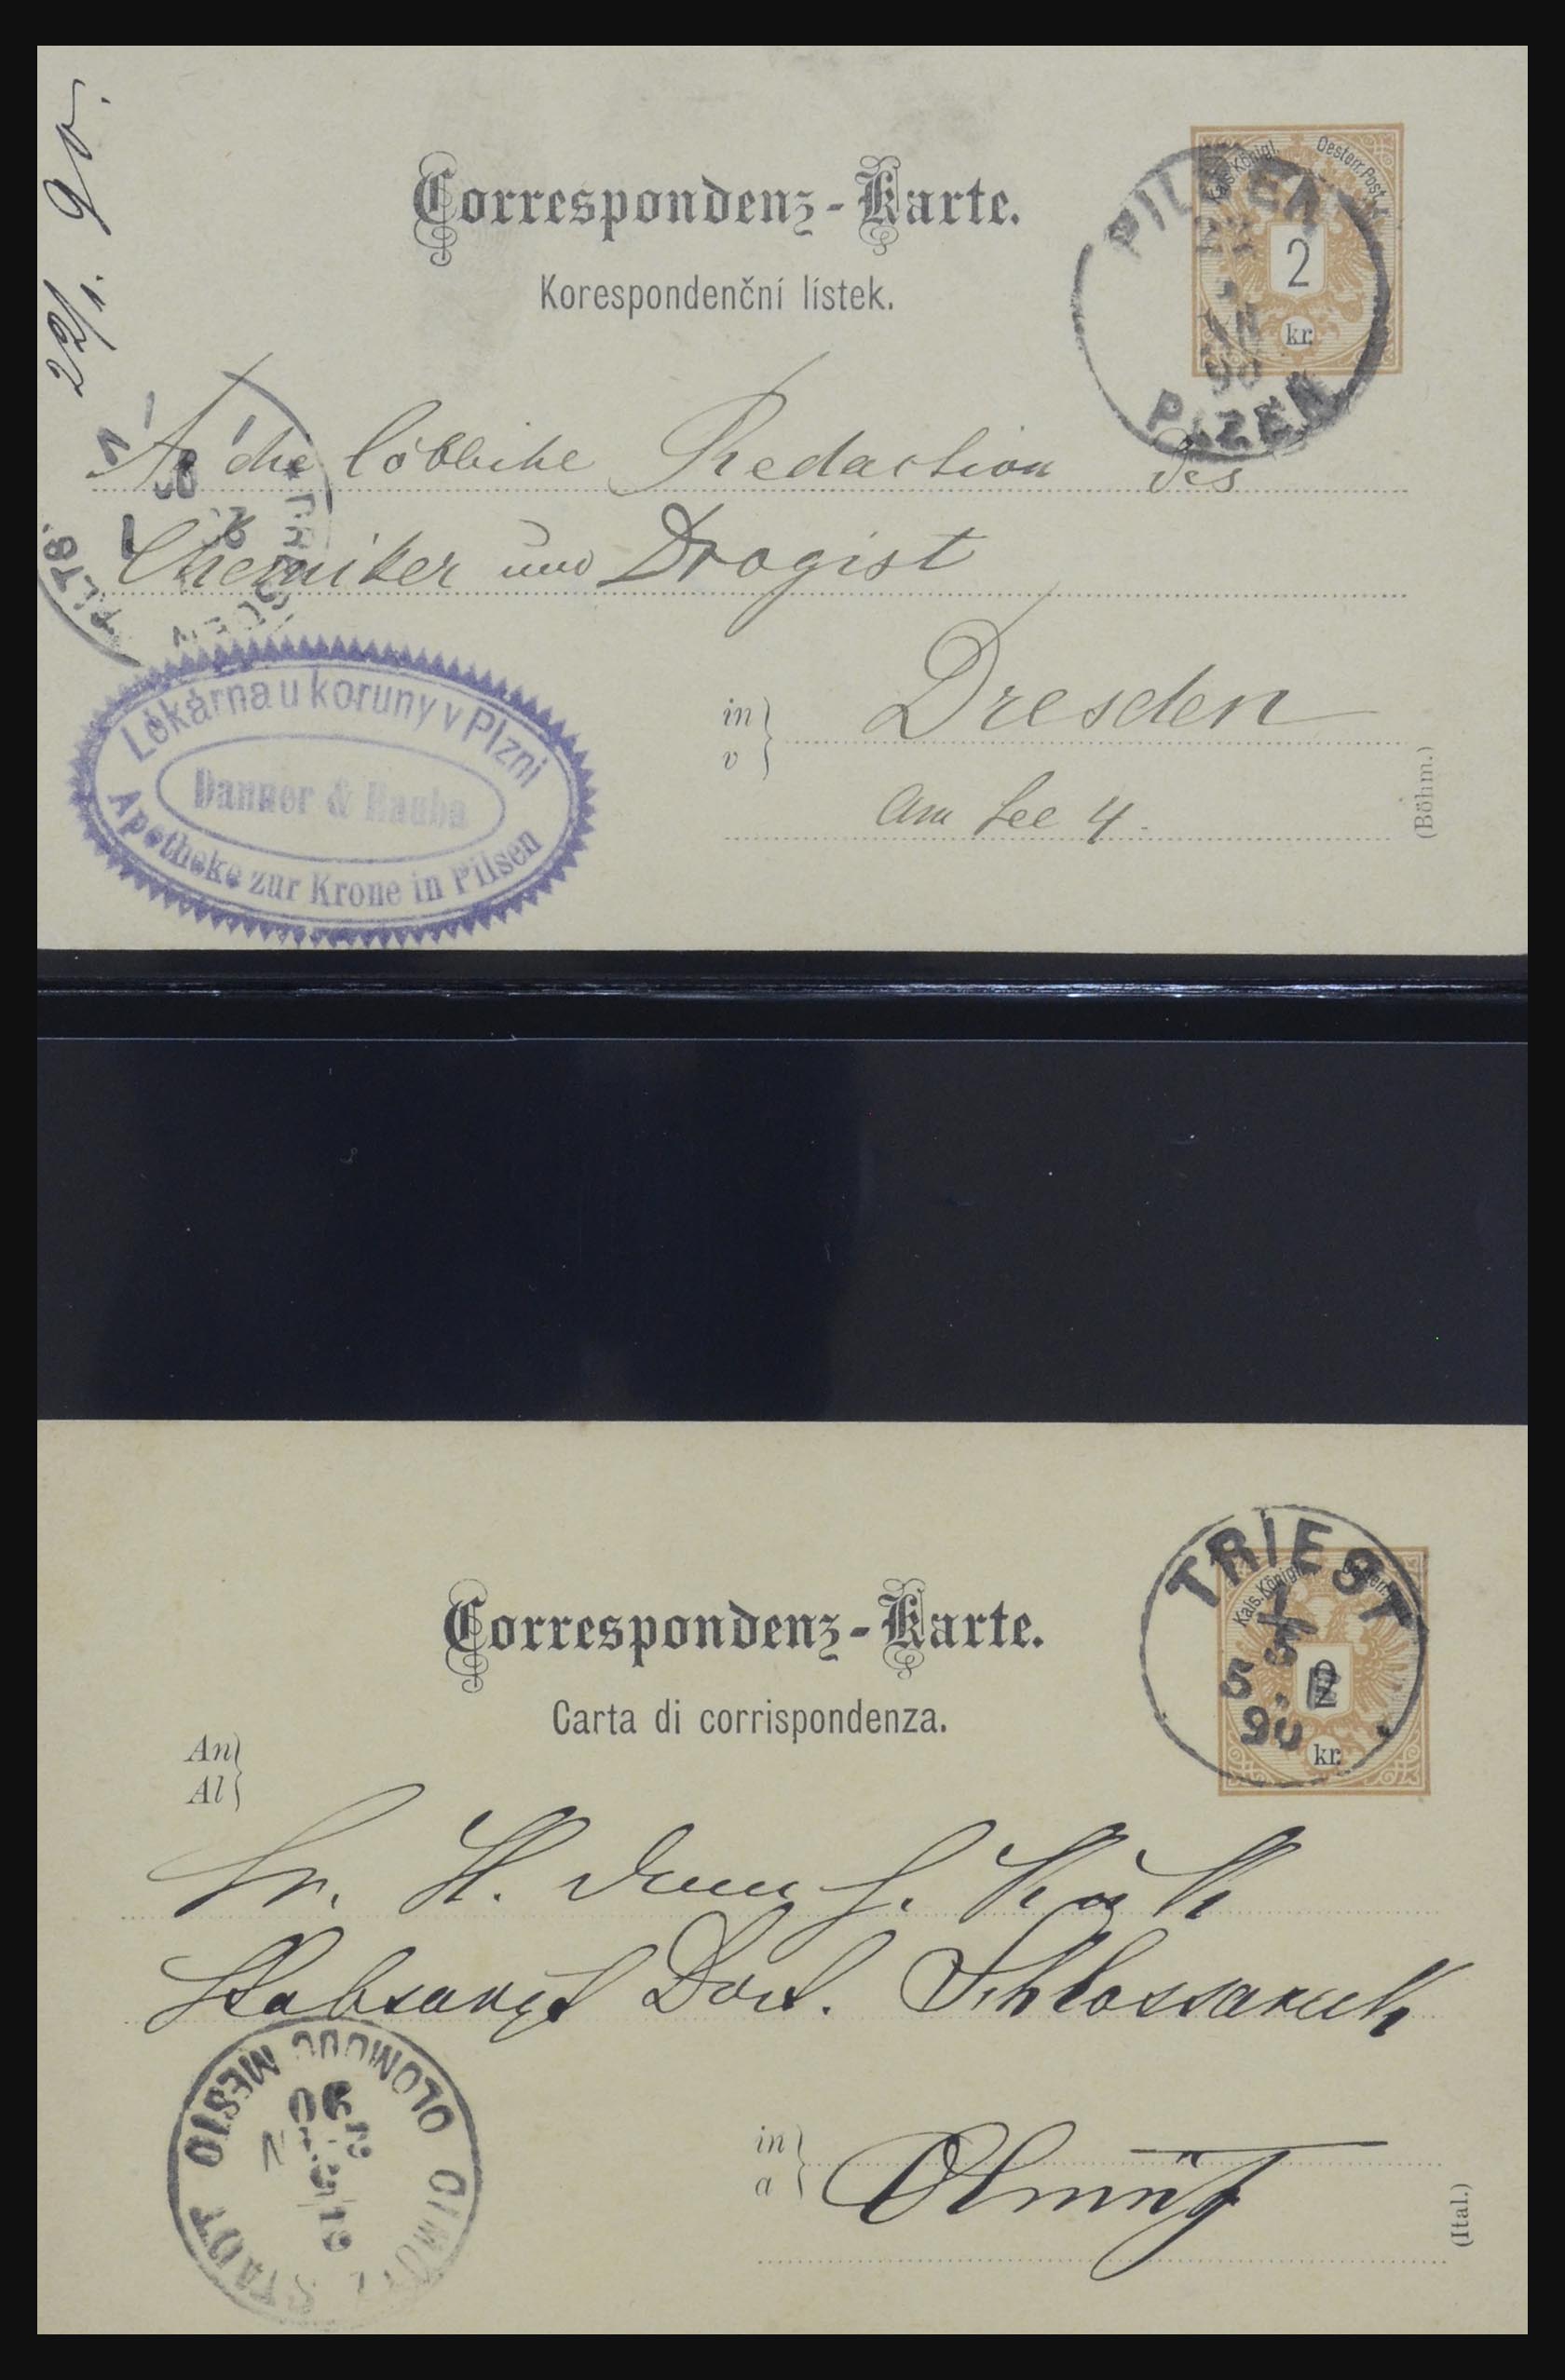 22/1. 90.
Correspondenz-Karte.
Korespondenční lístek.
Kais. Königl. Oesterr. Post
2
kr.
PILSEN
90
PLZEN
DRESDEN
ALTST.
An die löbliche Redaction des
Chemiker und Drogist
in
v
Dresden
am See 4.
(Böhm.)
Lékárna u koruny v Plzni
Danner & Hauba
Apotheke zur Krone in Pilsen
Correspondenz-Karte.
Carta di corrispondenza.
Kais. Königl.
2
kr.
TRIEST
5 5
90
An
Al
Sr. H.
Stabsarzt Doct. Schlossarek
in
a
Olmütz
(Ital.)
OLOMOUC MĚSTO
90
OLMÜTZ STADT